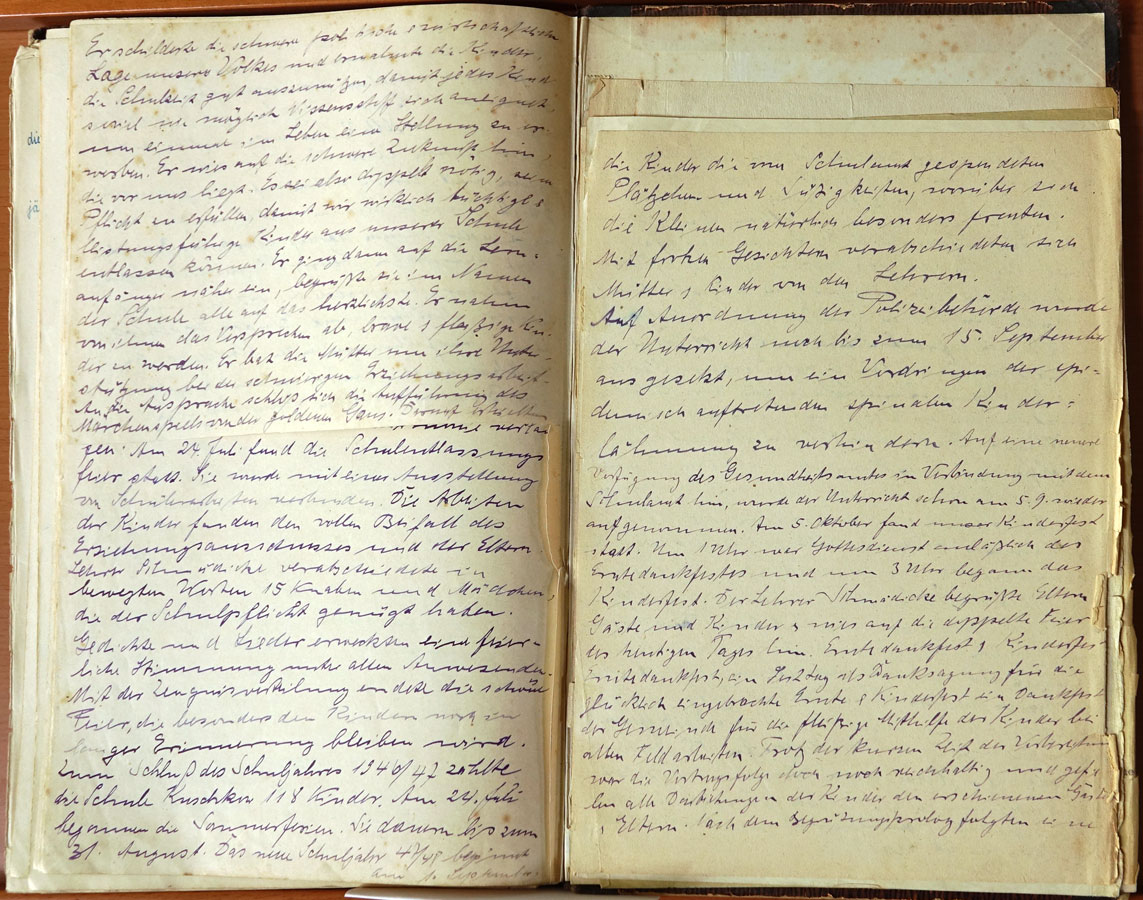 die
jä
Er schilderte die schwere politische & wirtschaftliche
Lage unseres Volkes und ermahnte die Kinder,
die Schulzeit gut auszunützen, damit jedes Kind
soviel wie möglich Wissenschaft sich aneignet,
um einmal im Leben eine Stellung zu er-
werben. Er wies auf die schwere Zukunft hin,
die vor uns liegt. Es sei also doppelt nötig,
Pflicht zu erfüllen, damit wir wirklich tüchtige &
leistungsfähige Kinder aus unserer Schule
entlassen können. Er ging dann auf die Lern-
anfänger näher ein, begrüßte sie im Namen
der Schule alle auf das herzlichste. Er nahm
von ihnen das Versprechen ab, brave & fleißige Kin-
der zu werden. Er bat die Mütter um ihre Unter-
stützung bei der schwierigen Erziehungsarbeit.
An die Ansprache schloss sich die Aufführung des
Märchenspiels von der goldenen Gans. Darauf erhielten
gen. Am 24. Juli fand die Schulentlassungs
feier statt. Sie wurde mit einer Ausstellung
von Schülerarbeiten verbunden. Die Arbeiten
der Kinder fanden den vollen Beifall des
Erziehungsausschusses und der Eltern.
Lehrer Schmädicke verabschiedete in
bewegten Worten 15 Knaben und Mädchen,
die der Schulpflicht genügt haben.
Gedichte und Lieder erweckten eine feier-
liche Stimmung unter allen Anwesenden.
Mit der Zeugnisverteilung endete die schöne
Feier, die besonders den Kindern noch in
langer Erinnerung bleiben wird.
Zum Schluß des Schuljahres 1946/47 zählte
die Schule Kuschkow 118 Kinder. Am 24. Juli
begannen die Sommerferien. Sie dauern bis zum
31. August. Das neue Schuljahr 47/48 beginnt
am 1. September.
die Kinder die vom Schulamt gespendeten
Plätzchen und Süßigkeiten, worüber sich
die Kleinen natürlich besonders freuten.
Mit frohen Gesichtern verabschiedeten sich
Mütter & Kinder von den Lehrern.
Auf Anordnung der Polizeibehörde wurde
der Unterricht noch bis zum 15. September
ausgesetzt, um ein Vordringen der epi-
demisch auftretenden spinalen Kinder-
lähmung zu verhindern. Auf eine neuere
Verfügung des Gesundheitsamtes in Verbindung mit dem
Schulamt hin, wurde der Unterricht schon am 5.9. wieder
aufgenommen. Am 5. Oktober fand unser Kinderfest
statt. Um 1 Uhr war Gottesdienst anläßlich des
Erntedankfestes und um 3 Uhr begann das
Kinderfest. Der Lehrer Schmädicke begrüßte Eltern
Gäste und Kinder & wies auf die doppelte Feier
des heutigen Tages hin. Erntedankfest & Kinderfest
Erntedankfest, ein Festtag als Danksagung für die
glücklich eingebrachte Ernte & Kinderfest ein Dankfest
der Gemeinde für die fleißige Mithilfe der Kinder bei
allen Feldarbeiten. Trotz der kurzen Zeit der Vorbereitung
war die Vortragsfolge doch noch reichhaltig und gefie-
len alle Darbietungen der Kinder den erschienenen Gästen
& Eltern. Nach dem Begrüßungsprolog folgten eine